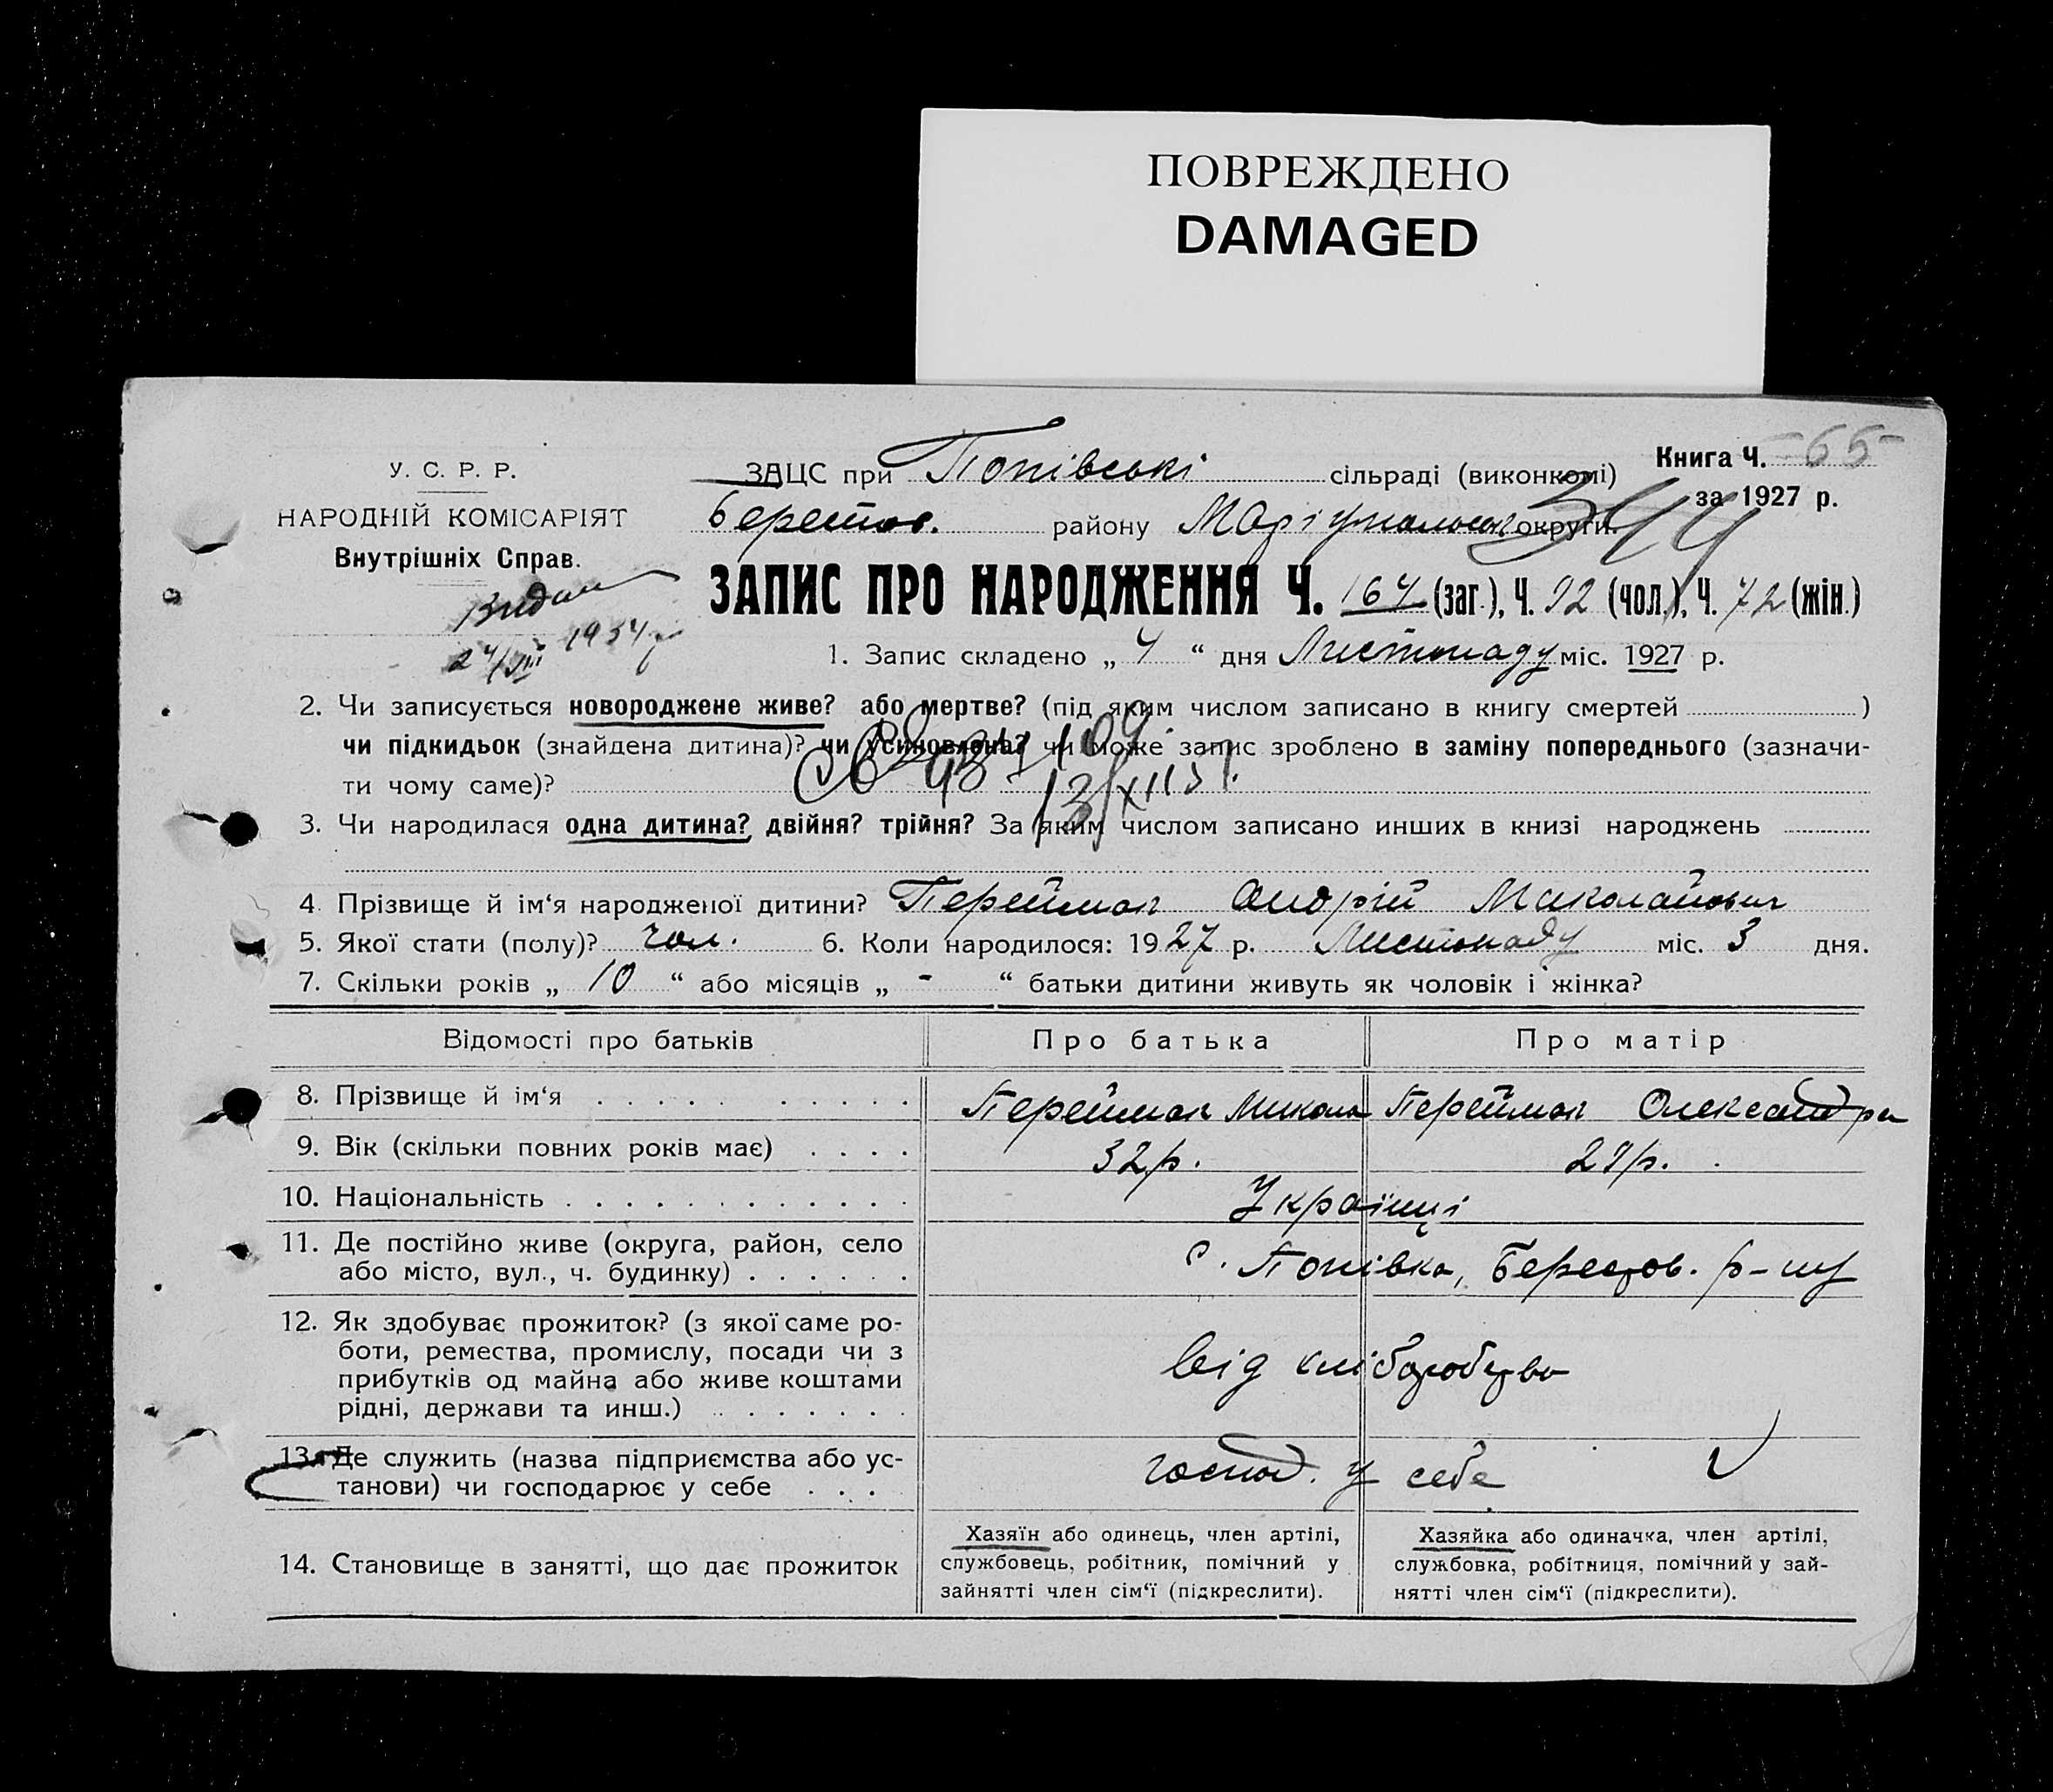 ПОВРЕЖДЕНО
DAMAGED
Книга Ч. -65-
за 1927 р.
344
У. С. Р. Р.
НАРОДНІЙ КОМІСАРІЯТ
Внутрішніх Справ.
ЗАЦС при Попівські сільраді (виконкомі)
Берестов. району Маріупольськ округи.
ЗАПИС ПРО НАРОДЖЕННЯ Ч. 164 (заг.), Ч. 92 (чол.), Ч. 72 (жін.)
1. Запис складено „ 4 “ дня Листопаду міс. 1927 р.
2. Чи записується новороджене живе? або мертве? (під яким числом записано в книгу смертей )
чи підкидьок (знайдена дитина)? чи усиновлена? чи може запис зроблено в заміну попереднього (зазначи-
ти чому саме)?
3. Чи народилася одна дитина? двійня? трійня? За яким числом записано инших в книзі народжень
4. Прізвище й ім‘я народженої дитини? Переймак Андрій Миколайович
5. Якої стати (полу)? чол. 6. Коли народилося: 1927 р. Листопаду міс. 3 дня.
7. Скільки років „ 10 “ або місяців „ - “ батьки дитини живуть як чоловік і жінка?
Відомості про батьків Про батька Про матір
8. Прізвище й ім‘я Переймак Микола Переймак Олександра
9. Вік (скільки повних років має) 32 р. 29 р.
10. Національність Українці
11. Де постійно живе (округа, район, село
або місто, вул., ч. будинку) с. Попівка, Берестов. р-ну
12. Як здобуває прожиток? (з якої саме ро-
боти, ремества, промислу, посади чи з
прибутків од майна або живе коштами
рідні, держави та инш.) від хліборобства
13. Де служить (назва підприємства або ус-
танови) чи господарює у себе господ. у себе
14. Становище в занятті, що дає прожиток
Хазяїн або одинець, член артілі,
службовець, робітник, помічний у
зайнятті член сім‘ї (підкреслити).
Хазяйка або одиначка, член артілі,
службовка, робітниця, помічний у зай-
нятті член сім‘ї (підкреслити).